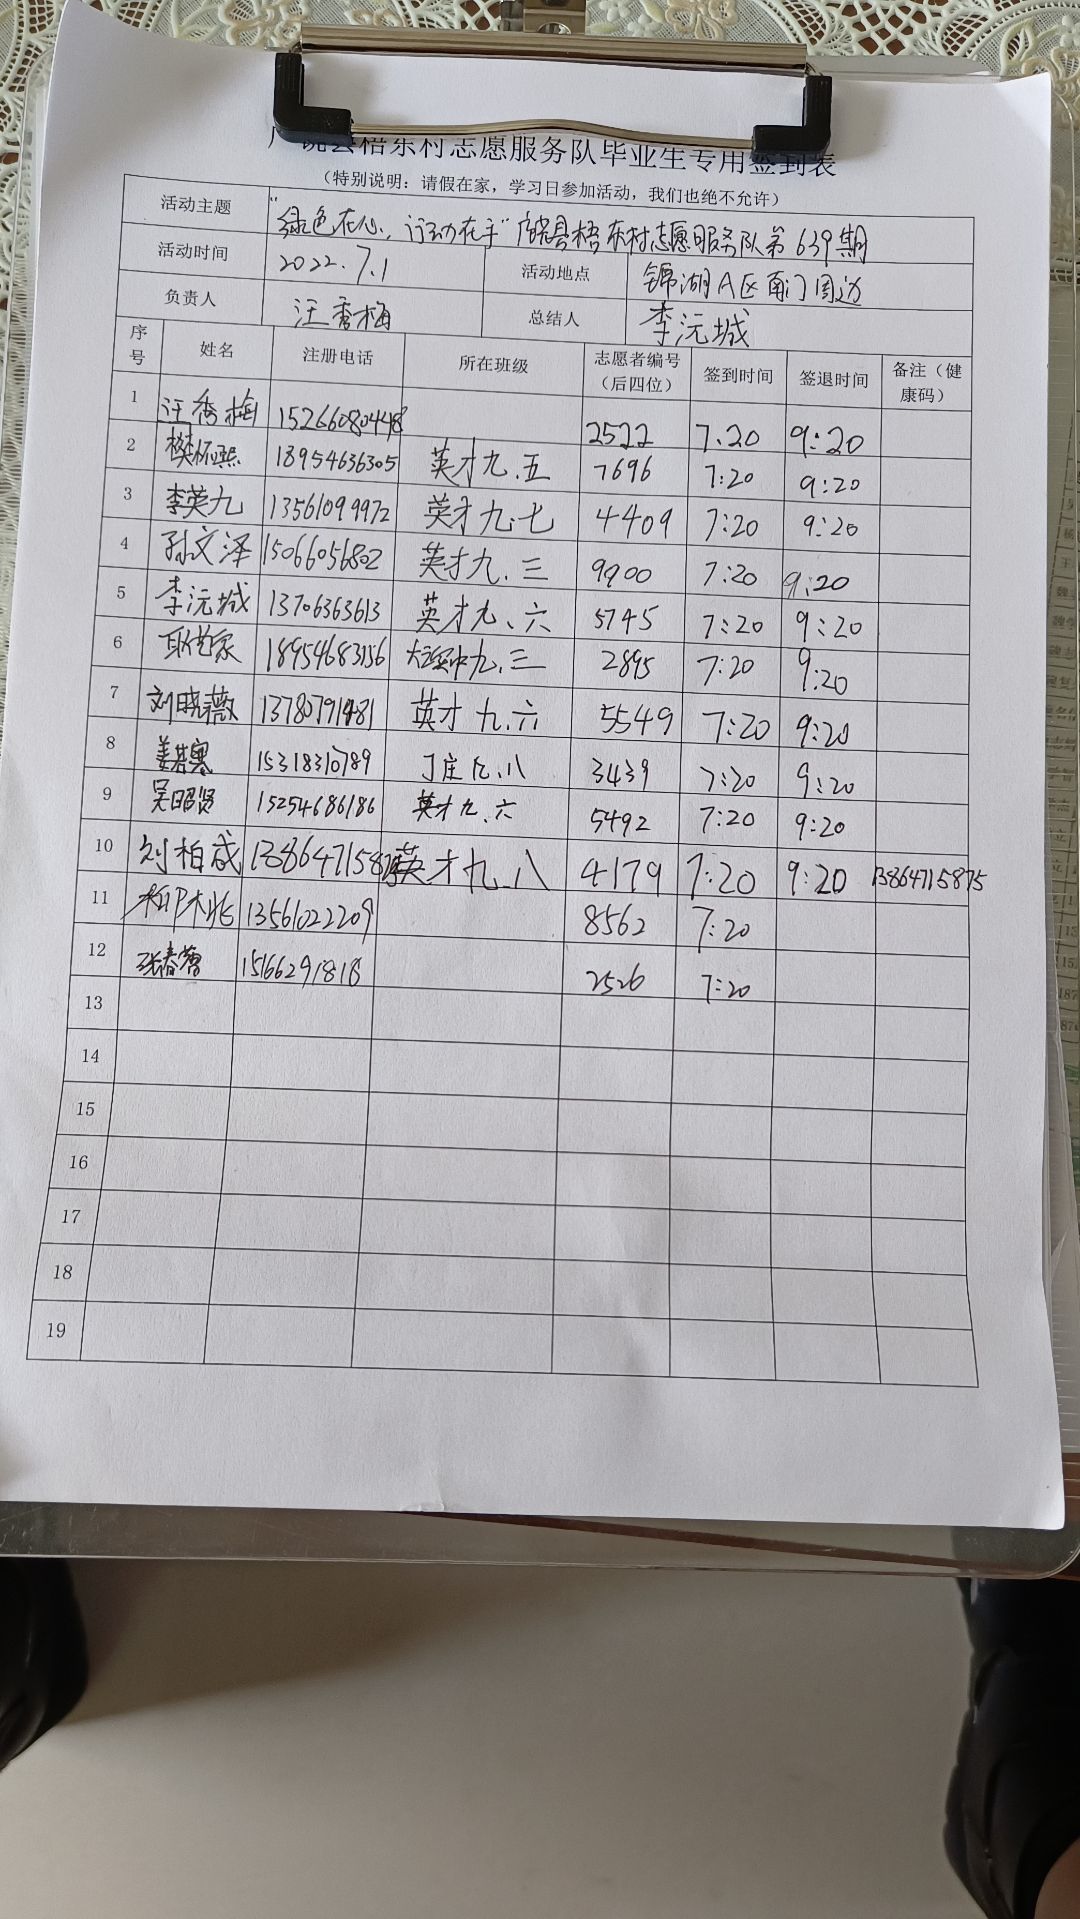 广饶县梧东村志愿服务队毕业生专用签到表
（特别说明：请假在家，学习日参加活动，我们也绝不允许）
活动主题 "绿色在心，行动在手"广饶县梧东村志愿服务队第639期
活动时间 2022.7.1 活动地点 锦湖A区南门周边
负责人 汪秀梅 总结人 李沅城
序号 姓名 注册电话 所在班级 志愿者编号（后四位） 签到时间 签退时间 备注（健康码）
1 汪秀梅 15266080448 2522 7.20 9:20
2 樊怀熙 18954636305 英才九.五 7696 7:20 9:20
3 李英九 13561099972 英才九.七 4409 7:20 9:20
4 孙文泽 15066056802 英才九.三 9900 7:20 9:20
5 李沅城 13706363613 英才九、六 5745 7:20 9:20
6 18954683156 九.三 2895 7:20 9:20
7 刘晓薇 13780791481 英才九.六 5549 7:20 9:20
8 姜若寒 15318310789 丁庄九.八 3439 7:20 9:20
9 吴昭贤 15254686186 英才九.六 5492 7:20 9:20
10 刘柏成 英才九.八 4179 7:20 9:20 13864715875
11 13561022209 8562 7:20
12 张春蓉 15166291818 2526 7:20
13
14
15
16
17
18
19